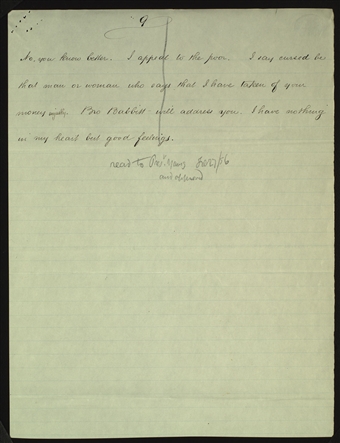 9
No, you know better. I appeal to the poor. I say cursed be
that man or woman who says that I have taken of your
money unjustly. Bro Babbitt will address you. I have nothing
in my heart but good feelings.
read to
and approved